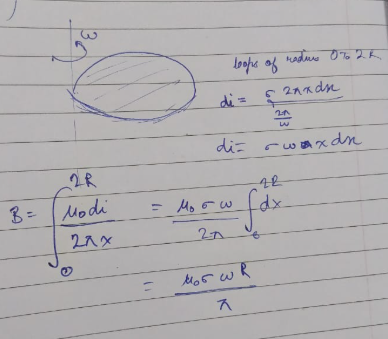 )
ω
loops of radius 0 to 2R
di = σ 2πx dx / (2π/ω)
di = σ ω x dx
B = ∫₀^2R μ₀ di / 2πx = μ₀ σ ω / 2π ∫₀^2R dx
= μ₀ σ ω R / π